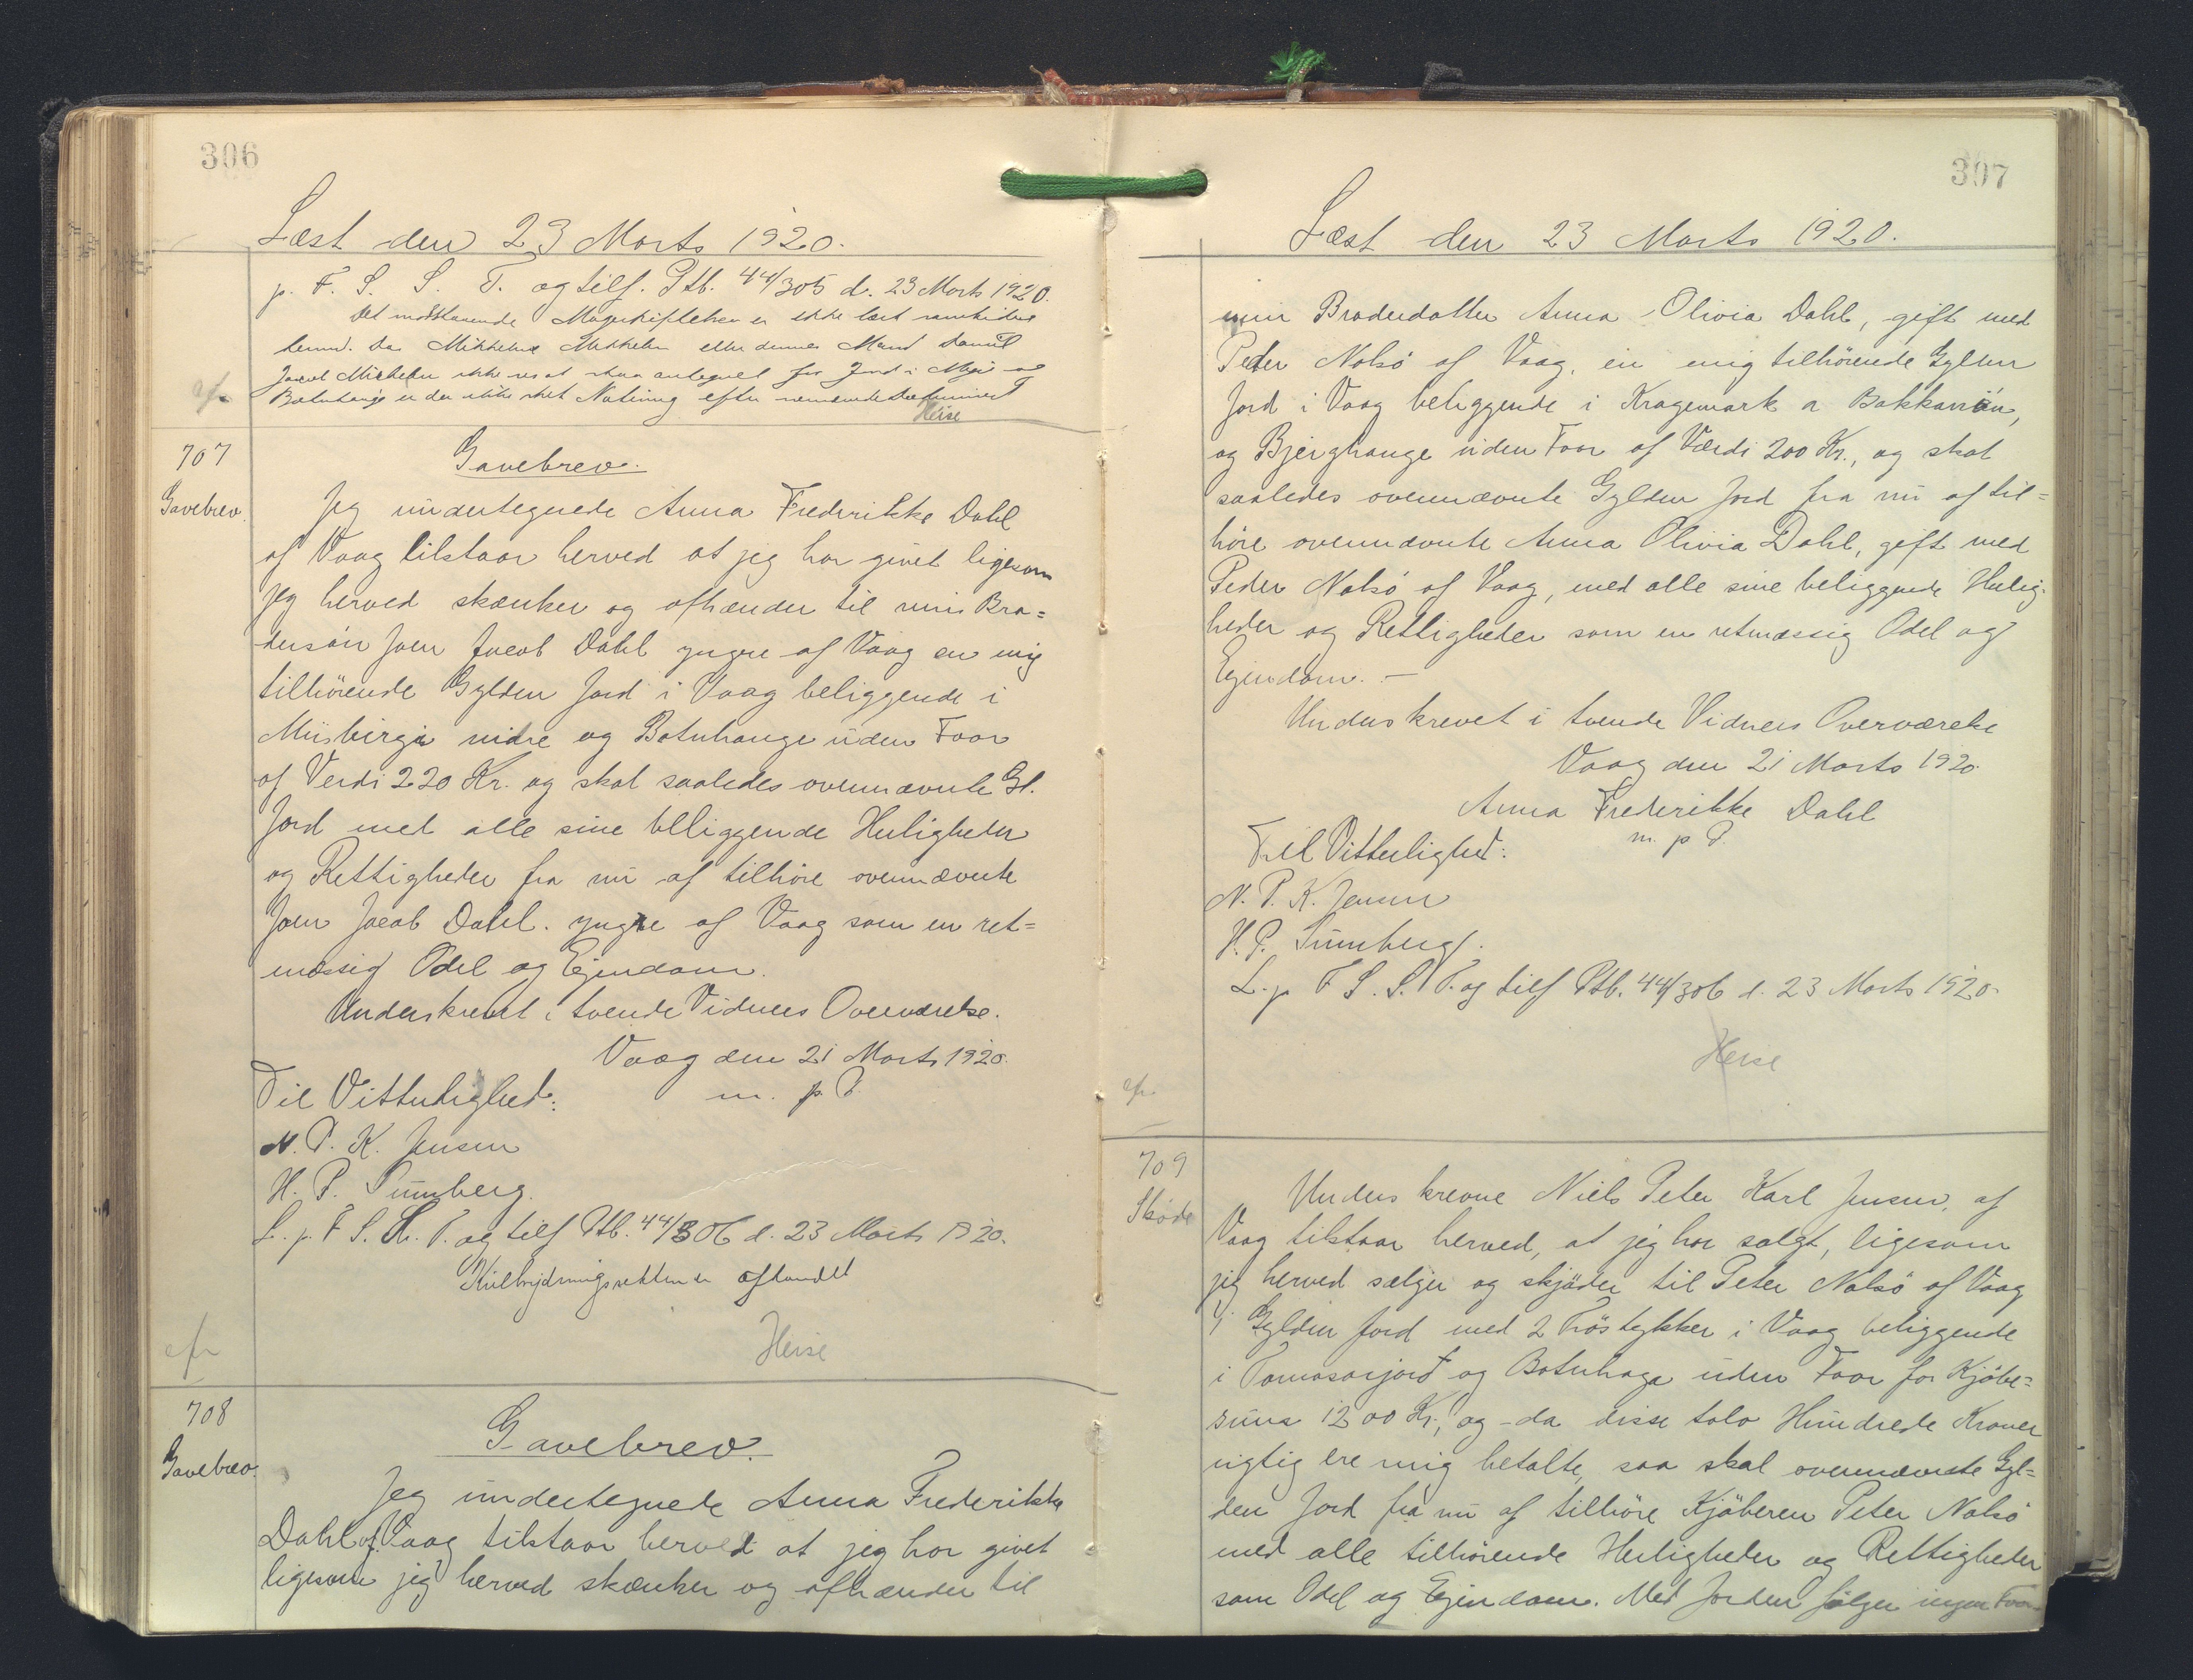 306
Læst den 23 Marts 1920.
p. F. S. S. T. og tilf. Ptb. 44/305 d. 23 Marts 1920.
Det modstaaende Mageskiftebrev er ikke læst
Da Mikkelsen eller dennes Mand Daniel
Jacob Michelsen ikke ses at staa antegnet for Jord i og
Botnhauge er der ikke sket Notering efter
Heise
cfr
707
Gavebrev.
Gavebrev.
Jeg undertegnede Anna Frederikke Dahl
af Vaag tilstaar herved at jeg har givet ligesom
jeg herved skænker og afhænder til min Bro=
dersön Joen Jacob Dahl yngre af Vaag en mig
tilhörende Gylden Jord i Vaag beliggende i
Músbirgi nidre og Botnhauge uden Foar
af Verdi 220 Kr. og skal saaledes ovennævnte Gl.
Jord med alle sine belliggende Herligheder
og Rettigheder fra nu af tilhöre ovennævnte
Joen Jacob Dahl. yngre af Vaag som en ret=
mæssig Odel og Ejendom.
Underskrevet i tvende Vidners Overværelse.
Vaag den 21 Marts 1920.
Til Vitterlighed: m. p. P.
N. P. K. Jensen
H. P. Sumberg.
L. p. F S. S. T. og tilf Ptb. 44/306 d. 23 Marts 1920.
Kulbrydningsretten er afhændet
Heise
cfr
708
Gavebrev.
Gavebrev.
Jeg undertegnede Anna Frederikke
Dahl af Vaag tilstaar herved at jeg har givet
ligesom jeg herved skænker og afhænder til
307
Læst den 23 Marts 1920.
min Broderdatter Anna Olivia Dahl, gift med
Peder Nolsö af Vaag, en mig tilhörende Gylden
Jord i Vaag beliggende i Kragemark a Bakkanön,
og Bjerghauge uden Foar af Værdi 200 Kr., og skal
saaledes ovennævnte Gylden Jord fra nu af til=
höre ovennævnte Anna Olivia Dahl, gift med
Peder Nolsö af Vaag, med alle sine beliggende Herlig-
heder og Rettigheder som en retmæssig Odel og
Ejendom. —
Underskrevet i tvende Vidners Overværelse
Vaag den 21 Marts 1920.
Anna Frederikke Dahl
m. p P.
Til Vitterlighed:
N. P. K. Jensen
H. P. Sumberg.
L. p F S. S. T. og tilf Ptb. 44/306 d. 23 Marts 1920.
Heise
cfr.
709
Sköde
Underskrevne Niels Peter Karl Jensen, af
Vaag tilstaar herved, at jeg har solgt, ligesom
jeg herved sælger og skjöder til Peter Nolsö af Vaag
1 Gylden Jord med 2 Tröstykker i Vaag beliggende
i Tomasarjord og Botnhaga uden Foar for Kjöbe=
sum 1200 Kr., og - da disse tolv Hundrede Kroner
rigtig ere mig betalte, saa skal ovennævnte Gyl=
den Jord fra nu af tilhöre Kjöberen Peter Nolsö
med alle tilhörende Herligheder og Rettigheder
som Odel og Ejendom. Med Jorden fölger ingen Foar